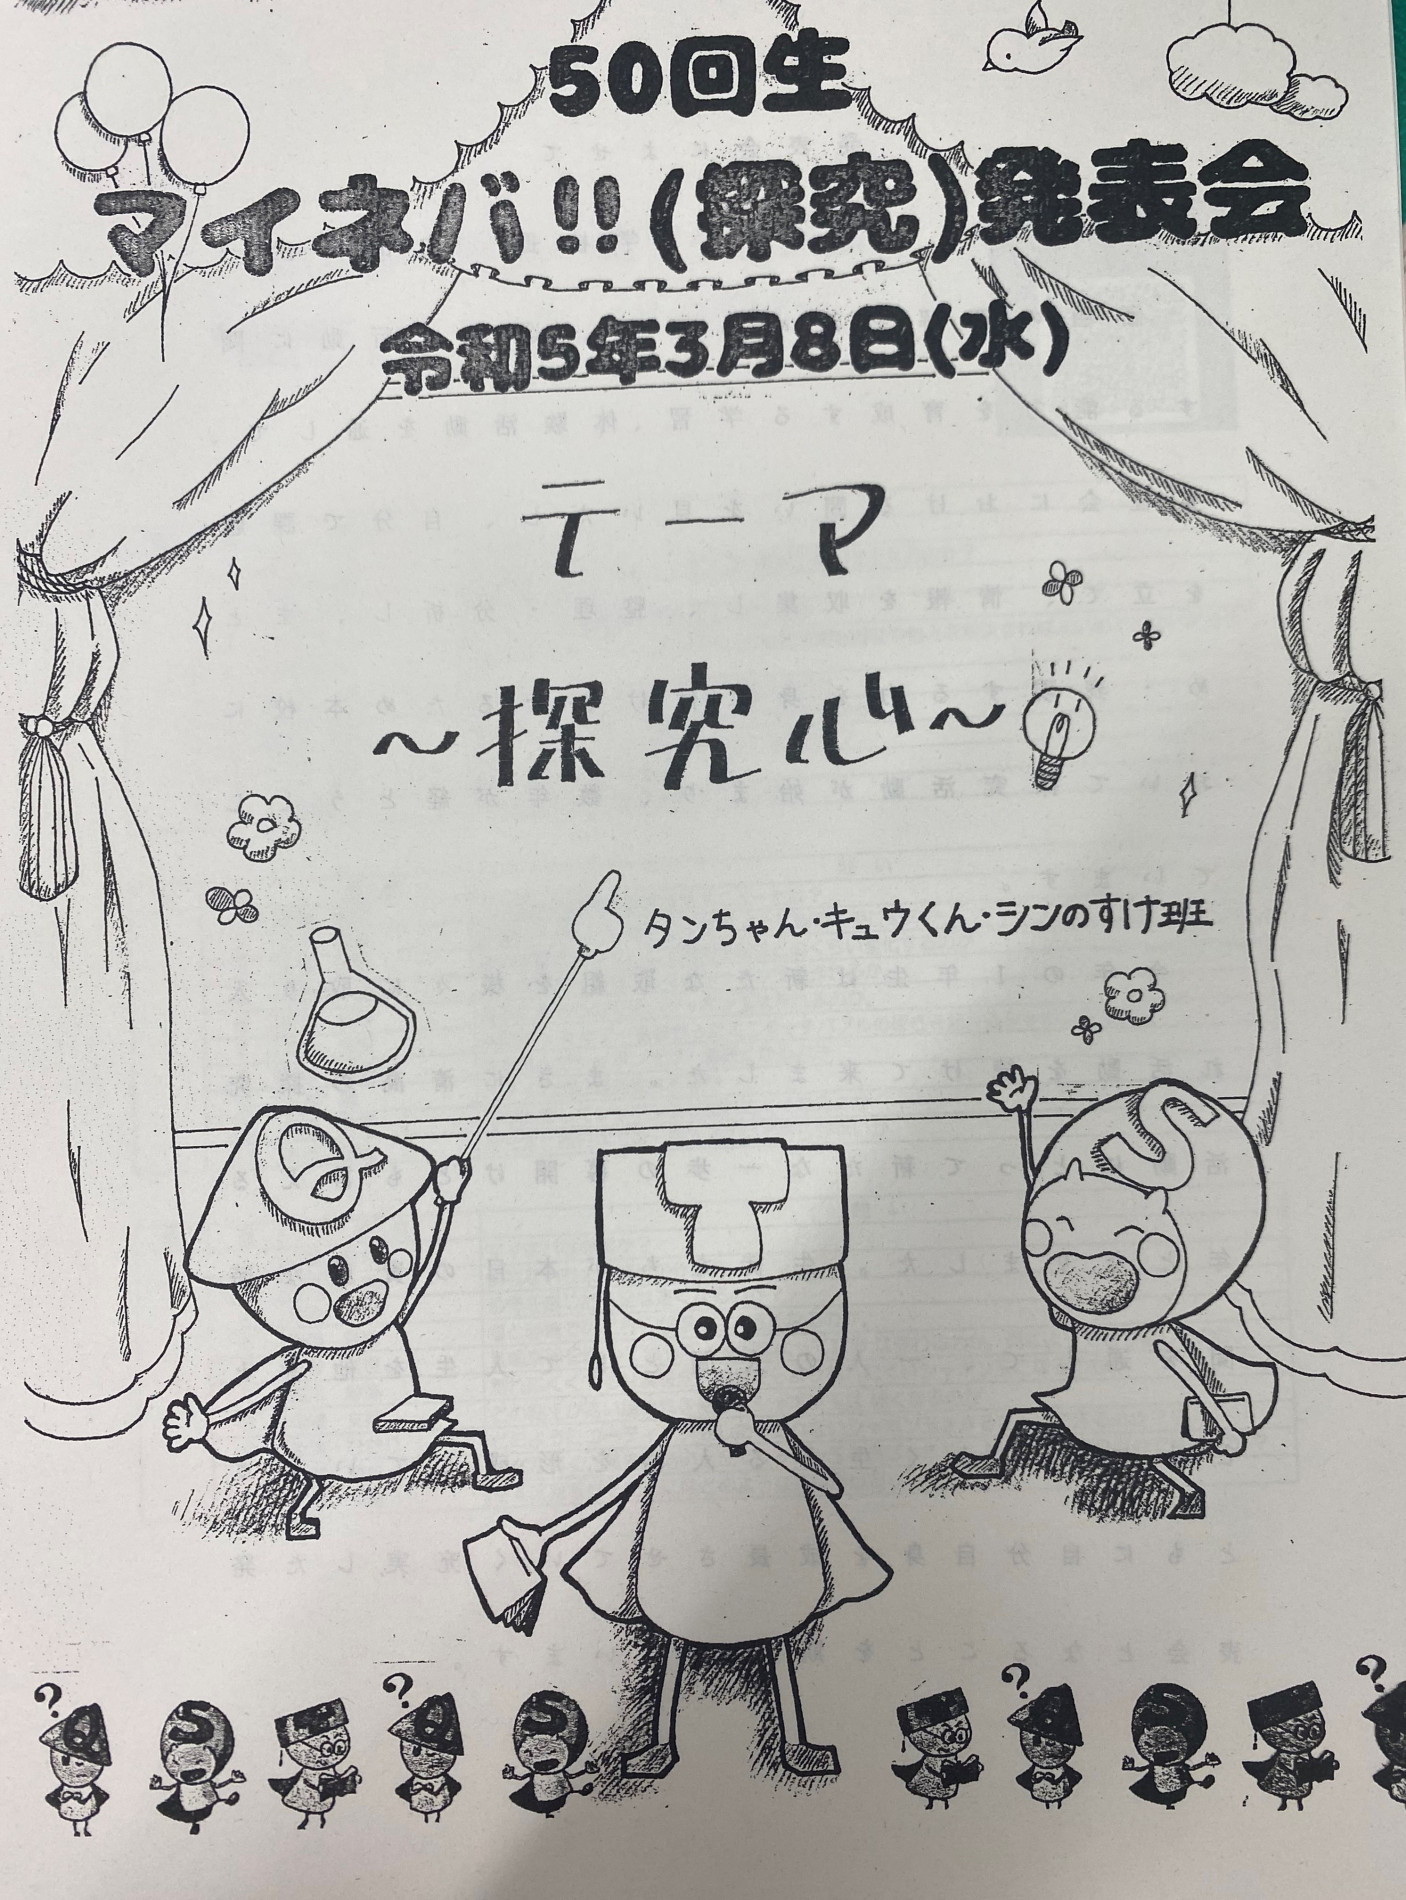 50回生
マイネバ!!(探究)発表会
令和5年3月8日(水)
テーマ
〜探究心〜
タンちゃん・キュウくん・シンのすけ班
Q
T
S
? ? ? ?